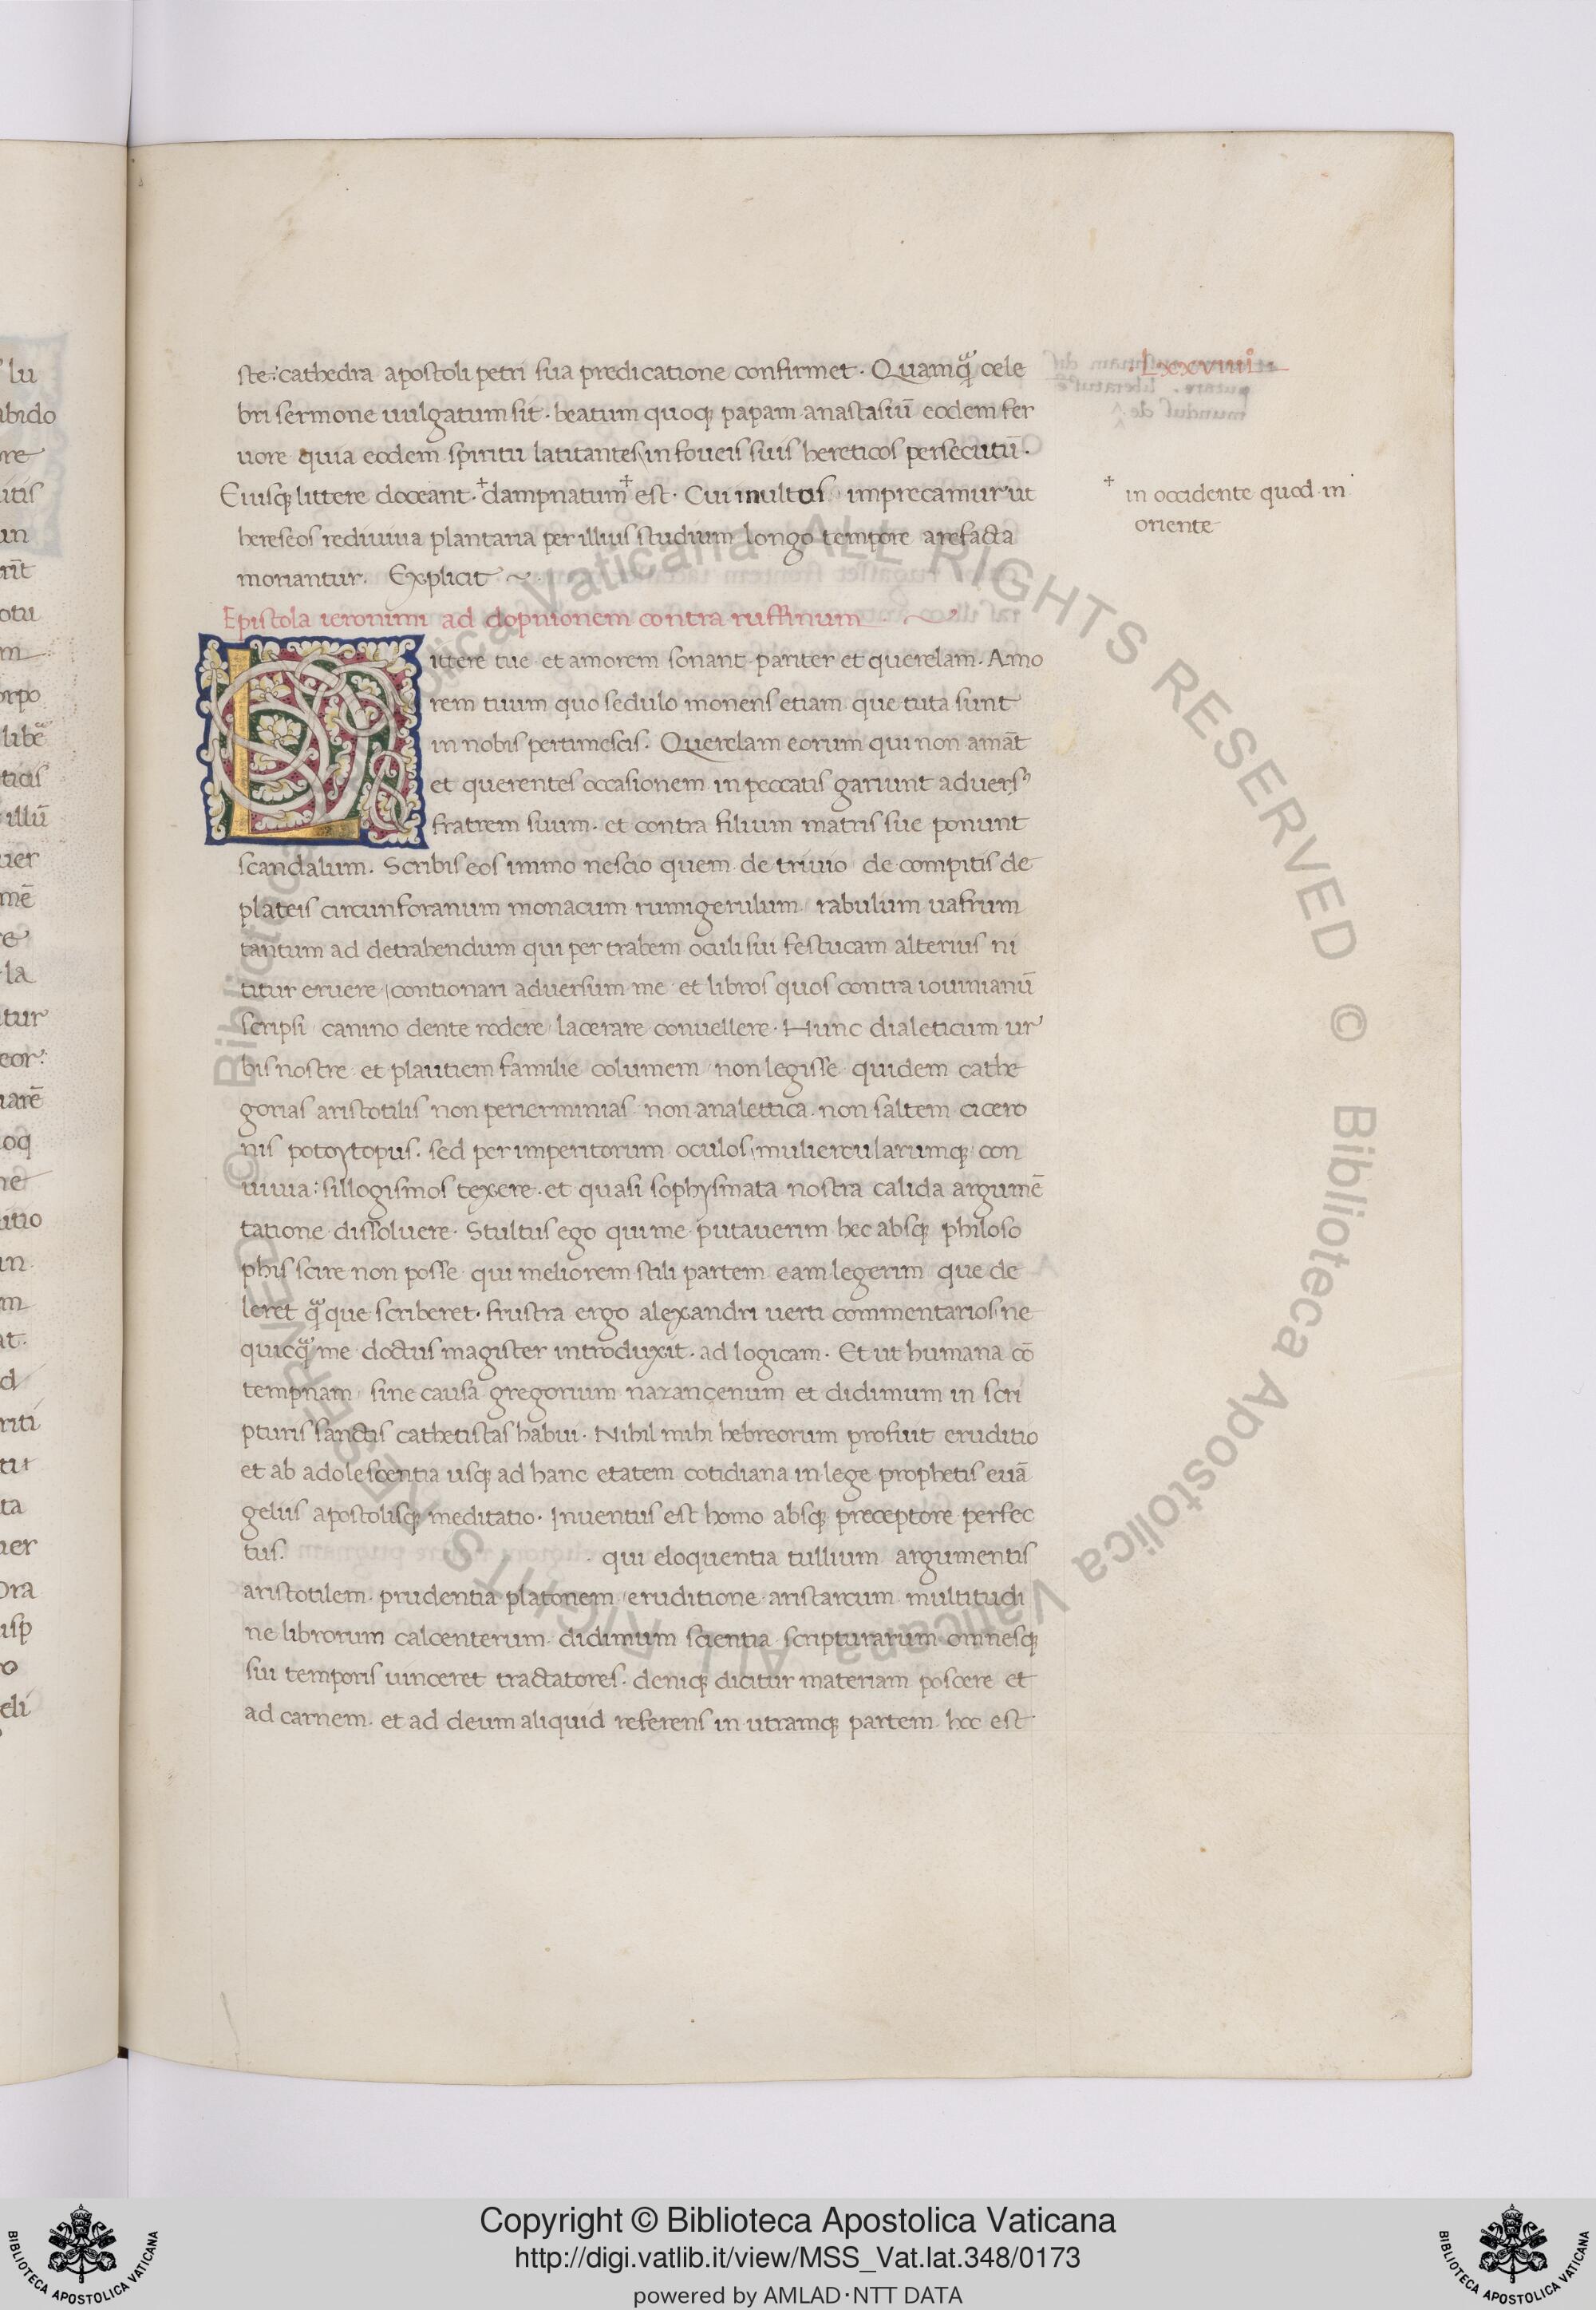 ste: cathedra apostoli petri sua predicatione confirmet. Quamqᷓ cele
bri sermone uulgatum sit. beatum quoqꝫ papam anastasiū eodem fer
uore quia eodem spiritu latitantes in foueis suis hereticos persecutū.
Eiusqꝫ littere doceant. ⸸dampnatum⸸ est. Cui multos imprecamur ut
hereseos rediuiua plantaria per illius studium longo tempore arefacta
moriantur. Explicit ~
Epistola ieronimi ad dopnionem contra ruffinum
Littere tue et amorem sonant pariter et querelam. Amo
rem tuum quo sedulo monens etiam que tuta sunt
in nobis pertimescis. Querelam eorum qui non amāt
et querentes occasionem in peccatis gariunt aduersꝰ
fratrem suum. et contra filium matris sue ponunt
scandalum. Scribis eos immo nescio quem de triuio de compitis de
plateis circunforanum monacum rumigerulum rabulium uafrum
tantum ad detrahendum qui per trabem oculi sui festucam alterius ni
titur eruere contionari aduersum me et libros quos contra iouinianū
scripsi canino dente rodere lacerare conuellere. Hunc dialeticum ur
bis nostre et plautiem familie columem non legisse quidem cathe
gorias aristotilis non perierminias non analettica. non saltem cicero
nis potoytopus. sed per imperitorum oculos muliercularumqꝫ con
uiuia: sillogismos texere. et quasi sophysmata nostra calida argumē
tatione dissoluere. Stultus ego qui me putauerim hec absqꝫ philoso
phis scire non posse qui meliorem stili partem eam legerim que de
leret qᷓ que scriberet. frustra ergo alexandri uerti commentarios ne
quicqᷓ me doctus magister introduxit. ad logicam. Et ut humana cō
tempnam sine causa gregorium nazançenum et didimum in scri
pturis sanctis cathetistas habui. Nihil mihi hebreorum profuit eruditio
et ab adolescentia usqꝫ ad hanc etatem cotidiana in lege prophetis euā
gelius apostolisqꝫ meditatio. Inuentus est homo absqꝫ preceptore perfec
tus. qui eloquentia tullium argumentis
aristotilem. prudentia platonem eruditione aristarcum multitudi
ne librorum calcenterum. didimum scientia scripturarum omnesqꝫ
sui temporis uinceret tractatores. deniqꝫ dicitur materiam poscere et
ad carnem. et ad deum aliquid referens in utramqꝫ partem. hoc est
Lxxviiii
⸸ in occidente quod in
oriente
lu
re
itis
un
otu
m
orpo
ticis
illū
uer
mē
la
tur
eor:
oq
itio
m
at.
d
riti
ta
uer
ora
eli
© Biblioteca Apostolica Vaticana ALL RIGHTS RESERVED © Biblioteca Apostolica Vaticana ALL RIGHTS RESERVED
Copyright © Biblioteca Apostolica Vaticana
http://digi.vatlib.it/view/MSS_Vat.lat.348/0173
powered by AMLAD·NTT DATA
BIBLIOTECA APOSTOLICA VATICANA
BIBLIOTECA APOSTOLICA VATICANA